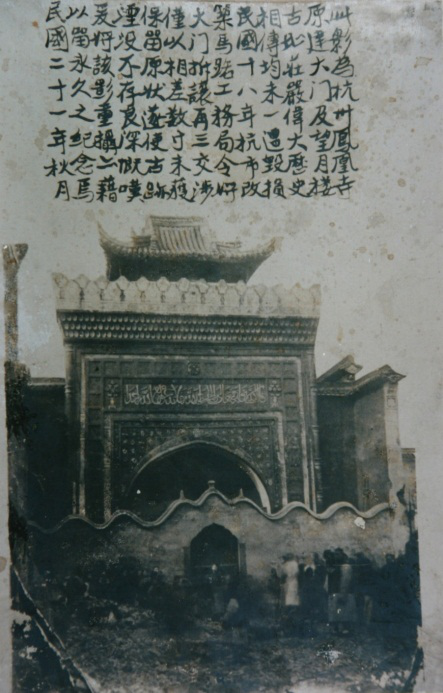 此影為杭州鳳凰寺
原建大门及望月楼
古地莊嚴偉大歷史
相傳均未一遭毀損
民國十八年杭市改
築馬路工務局令将
大门拆讓再三交涉
僅以相差数寸未獲
保畄原状遂使古跡
湮没不存良深慨嘆
爰将該影重攝一藉
以畄永久之紀念焉
民國二十一年秋月